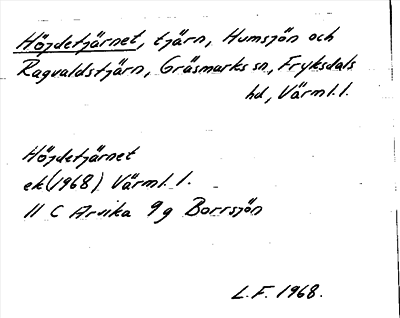 Höjdetjärnet, tjärn, Humsjön och
Ragvaldstjärn, Gräsmarks sn, Fryksdals
hd, Värml. l.
Höjdetjärnet
ek (1968) Värml. l.
11 C Arvika 9g Borrsjön
L.F. 1968.